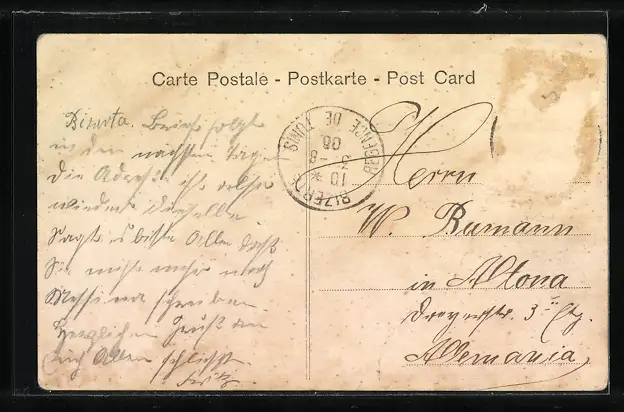 Carte Postale - Postkarte - Post Card
Biserta. Briefe folgt
in den nächsten Tagen
die Adresse ist
wieder dieselbe
Sagte bitte Allen daß
Sie nicht mehr nach
Messina schreiben
Herzlichen Gruß an
Euch Allen schließt
Fritz
BIZERTE
REGENCE DE TUNIS
10 *
3 - 8
06
Herrn
W. Rumann
in Altona
Dreyerstr. 3 II Etg.
Alemania